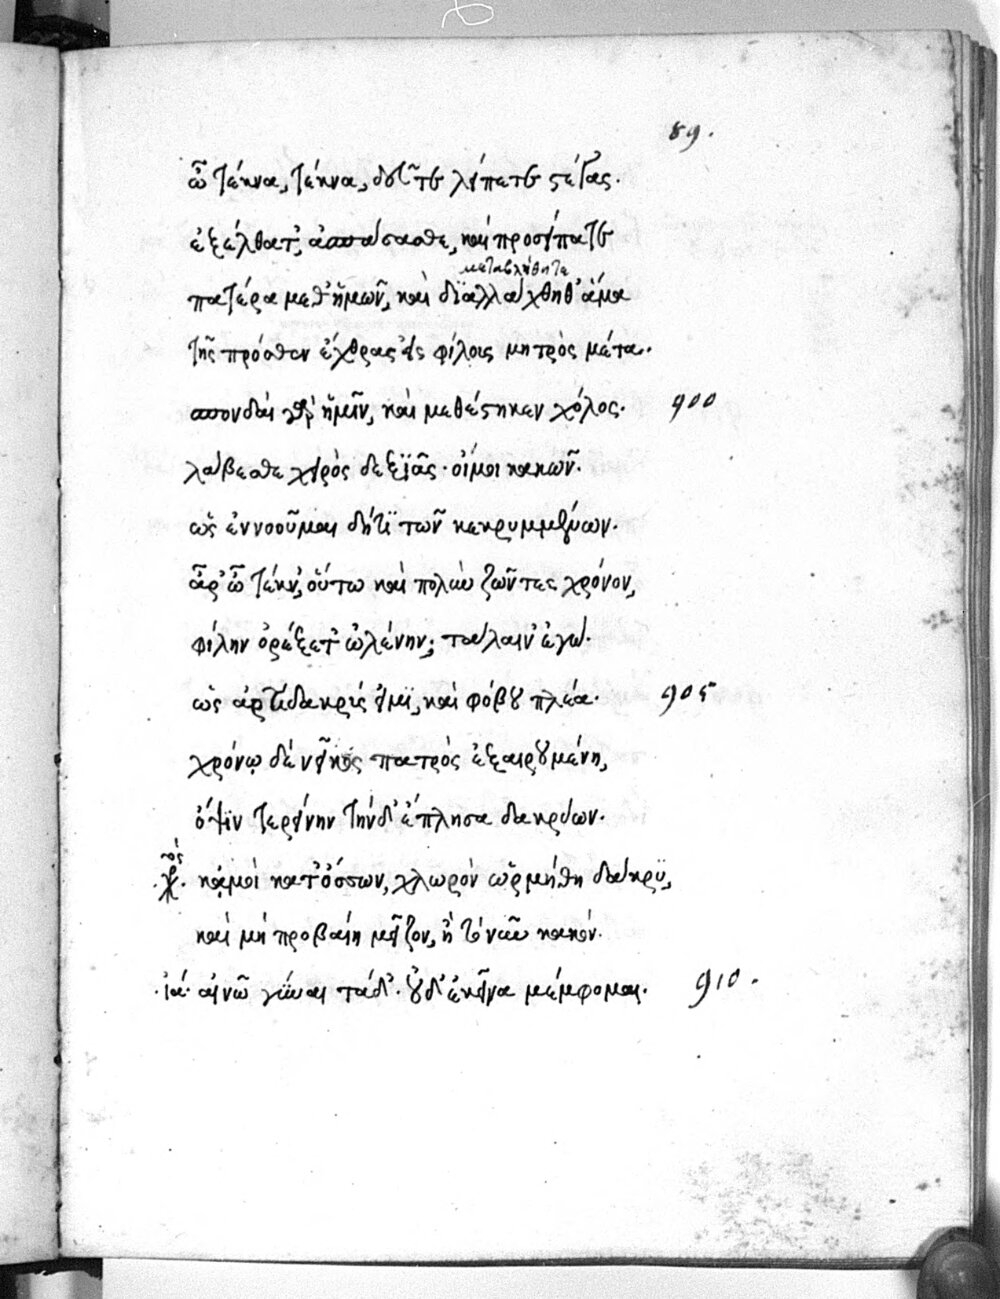 89.
ὦ τέκνα, τέκνα, δεῦτε λείπετε στέγας.
ἐξέλθατ', ἀσπάσασθε, καὶ προσείπατε
μεταβλήθητε
πατέρα μεθ' ἡμῶν, καὶ διαλλάχθηθ' ἅμα
τῆς πρόσθεν ἔχθρας εἰς φίλους μητρὸς μέτα.
σπονδαὶ γὰρ ἡμῖν, καὶ μεθέστηκεν χόλος. 900
λάβεσθε χειρὸς δεξιᾶς. οἴμοι κακῶν.
ὡς ἐννοοῦμαι δή τι τῶν κεκρυμμένων.
ἆρ' ὦ τέκν', οὕτω καὶ πολὺν ζῶντες χρόνον,
φίλην ὀρέξετ' ὠλένην; τάλαιν' ἐγώ.
ὡς ἀρτίδακρίς εἰμι, καὶ φόβου πλέα. 905
χρόνῳ δὲ νεῖκος πατρὸς ἐξαιρουμένη,
ὄψιν τερείνην τήνδ' ἔπλησα δακρύων.
χος. κἀμοὶ κατ' ὄσσων, χλωρὸν ὡρμήθη δάκρυ,
καὶ μὴ προβαίη μεῖζον, ἢ τὸ νῦν κακόν.
ιά. αἰνῶ γύναι τάδ'. οὐδ' ἐκεῖνα μέμφομαι. 910.